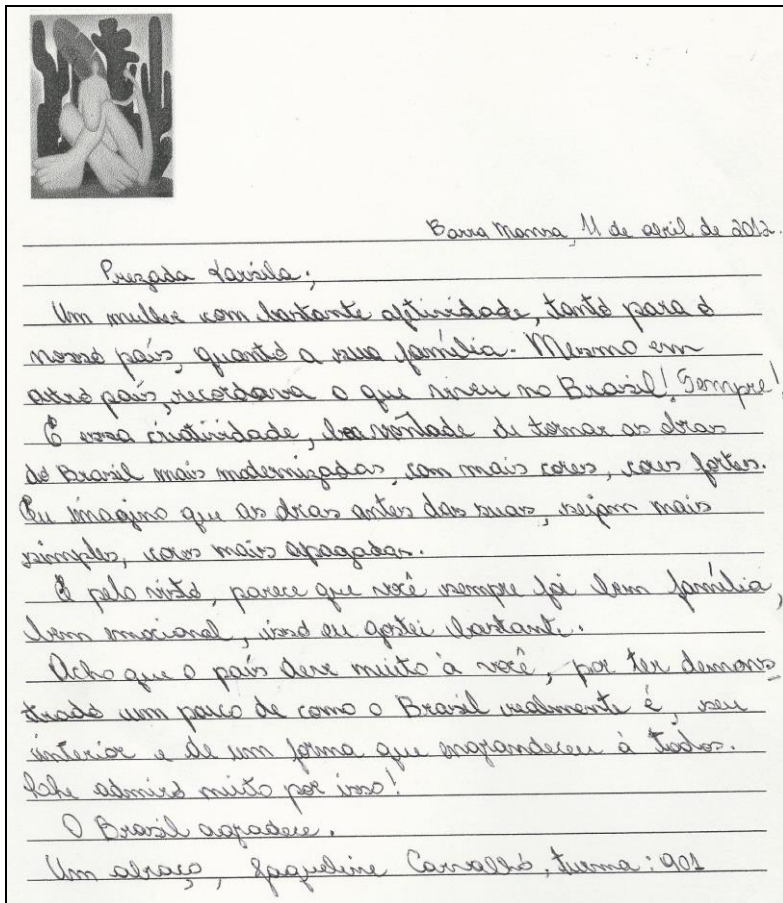 Barra Mansa, 11 de abril de 2012.
Prezada Tarsila;
Um mulher com bastante afetividade, tanto para o
nosso país, quanto a sua família. Mesmo em
outro país, recordava o que viveu no Brasil! Sempre!
E essa criatividade, boa vontade de tornar as obras
do Brasil mais modernizadas, com mais cores, cores fortes.
Eu imagino que as obras antes das suas, sejam mais
simples, cores mais apagadas.
E pelo visto, parece que você sempre foi bem família,
bem emocional, isso eu gostei bastante.
Acho que o país deve muito à você, por ter demons
trado um pouco de como o Brasil realmente é, seu
interior e de um forma que engrandeceu à todos.
lhe admiro muito por isso!
O Brasil agradece.
Um abraço, Jaqueline Carvalho, turma: 901